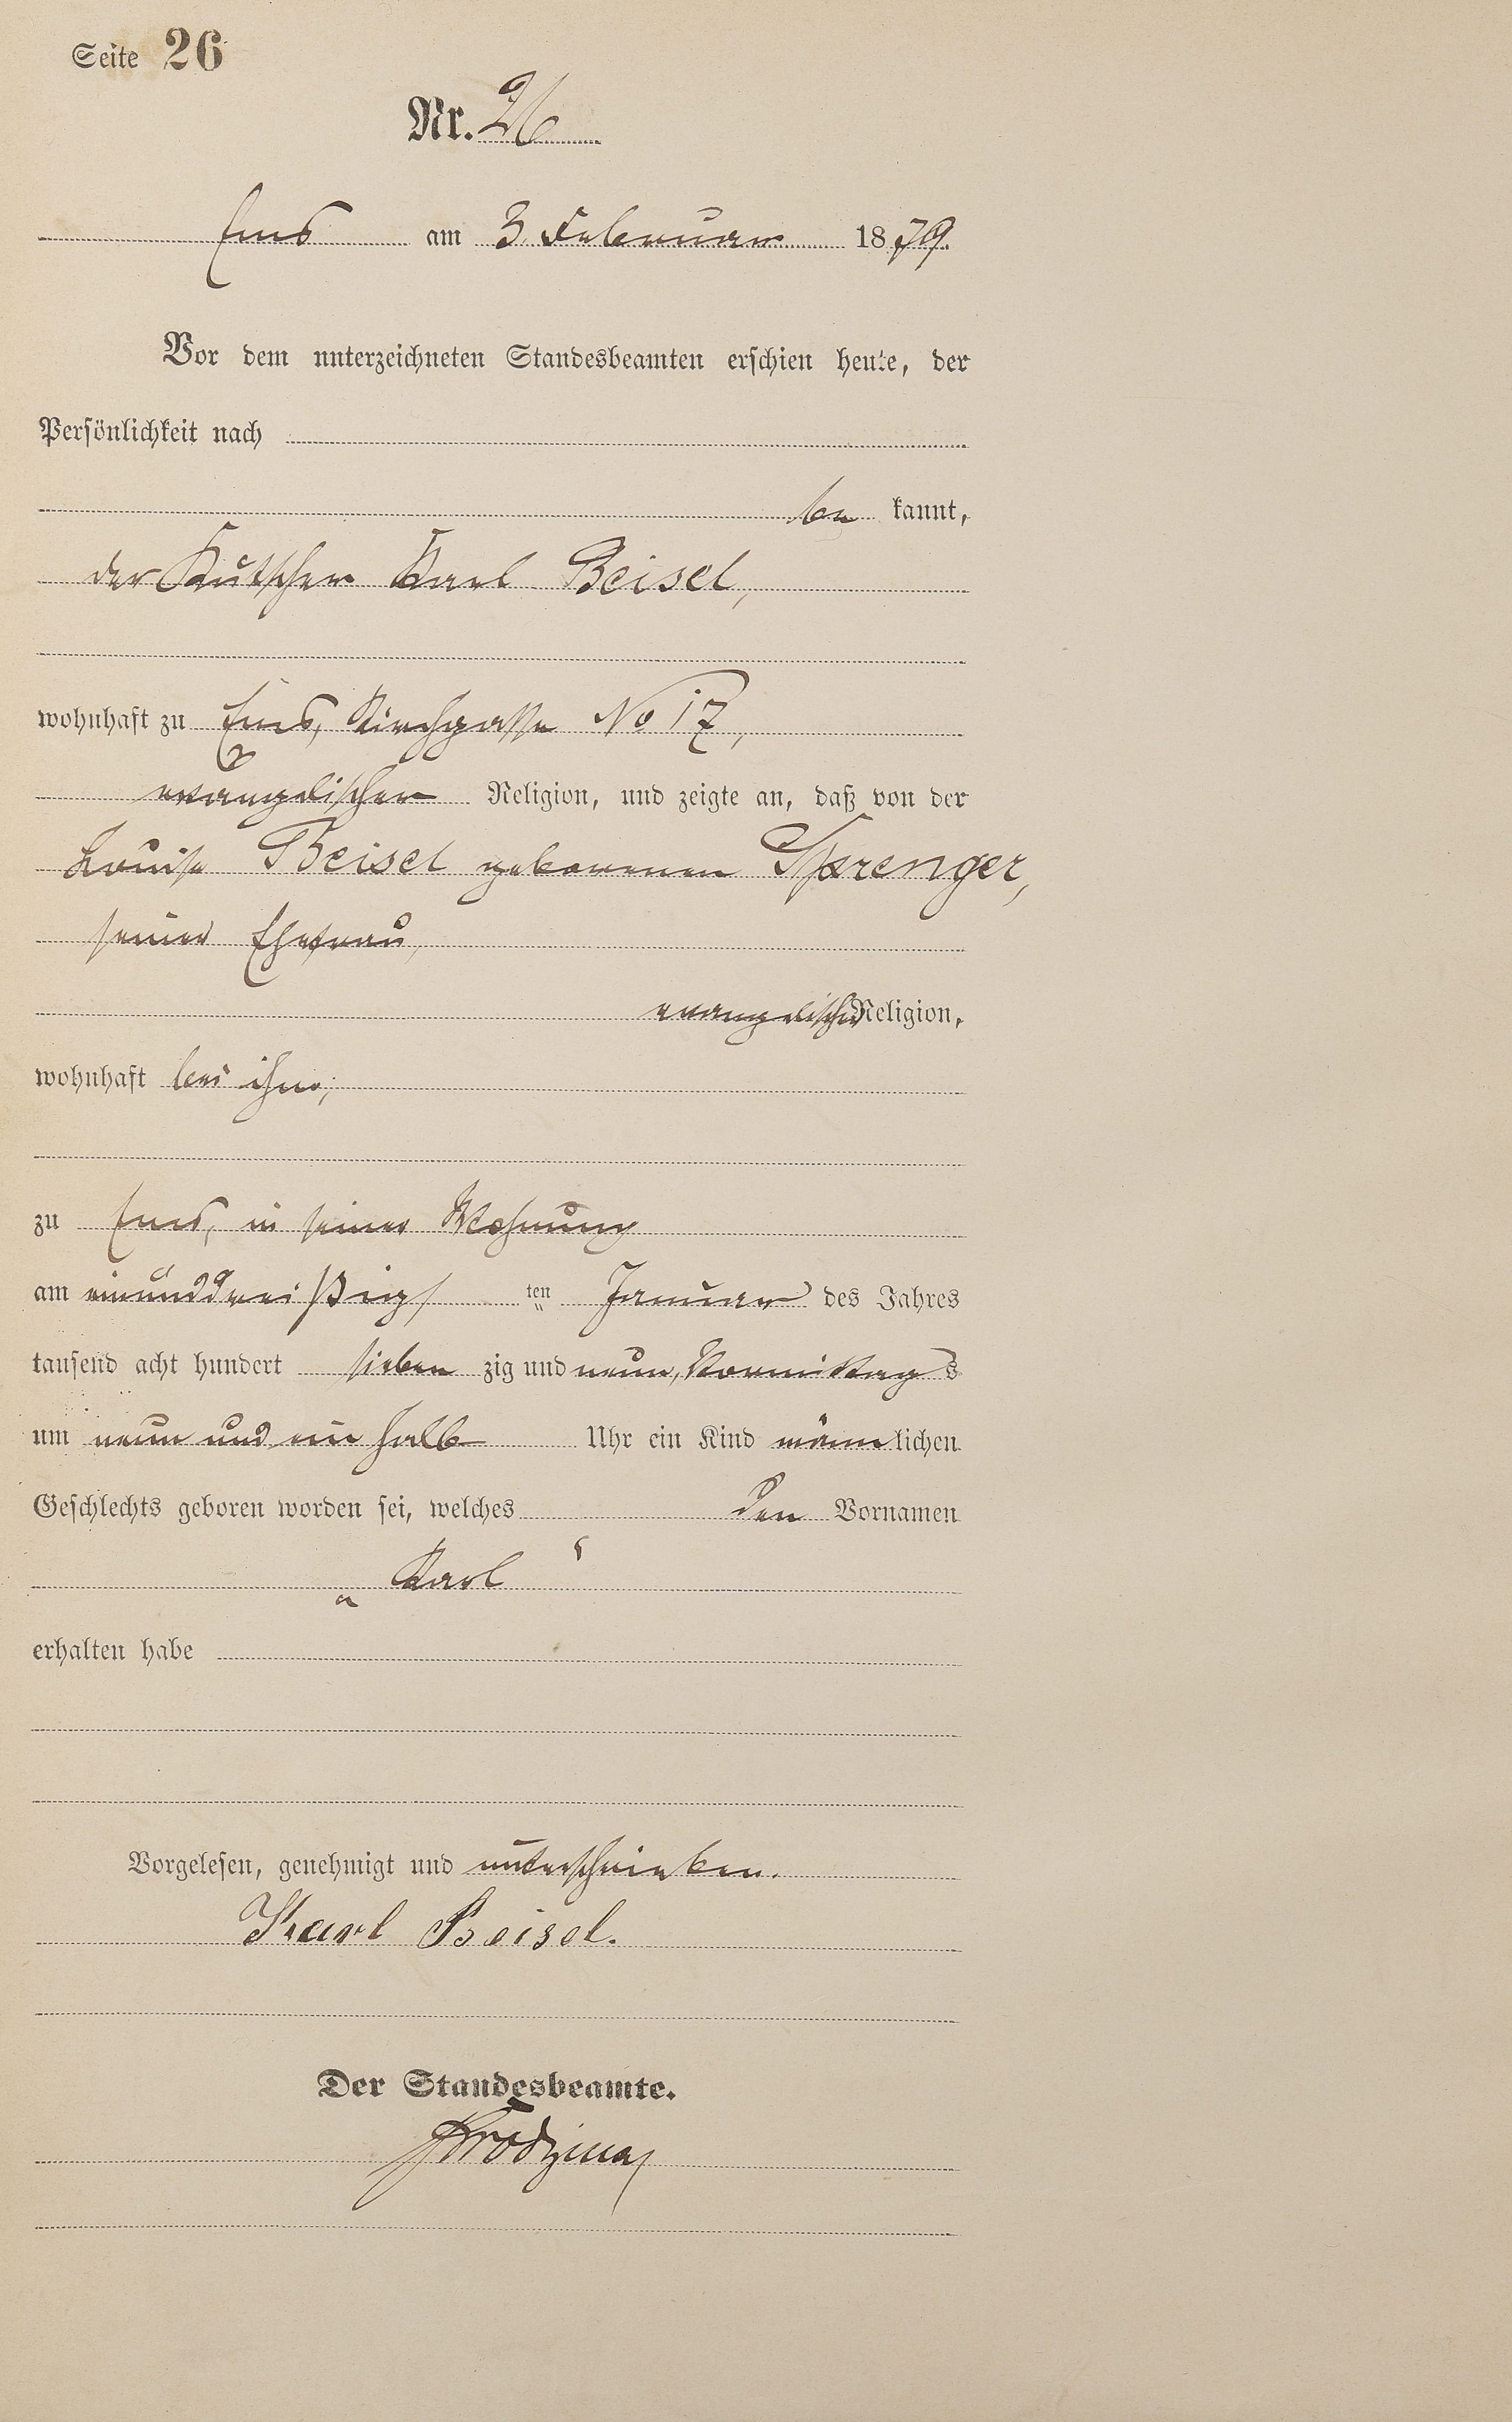 Seite 26
Nr. 26
Ems am 3 Februar 1879.
Vor dem unterzeichneten Standesbeamten erschien heute, der
Persönlichkeit nach
be kannt,
der Kutscher Karl Beisel,
wohnhaft zu Ems, Kirchgasse No 17,
evangelischer Religion, und zeigte an, daß von der
Louise Beisel geborenen Sprenger,
seiner Ehefrau,
evangelischer Religion,
wohnhaft bei ihm,
zu Ems, in seiner Wohnung
am einunddreißigs ten Januar des Jahres
tausend acht hundert sieben zig und neun, Vormittags
um neun und ein halb Uhr ein Kind männlichen
Geschlechts geboren worden sei, welches den Vornamen
„Karl“
erhalten habe
Vorgelesen, genehmigt und unterschrieben.
Karl Beisel.
Der Standesbeamte.